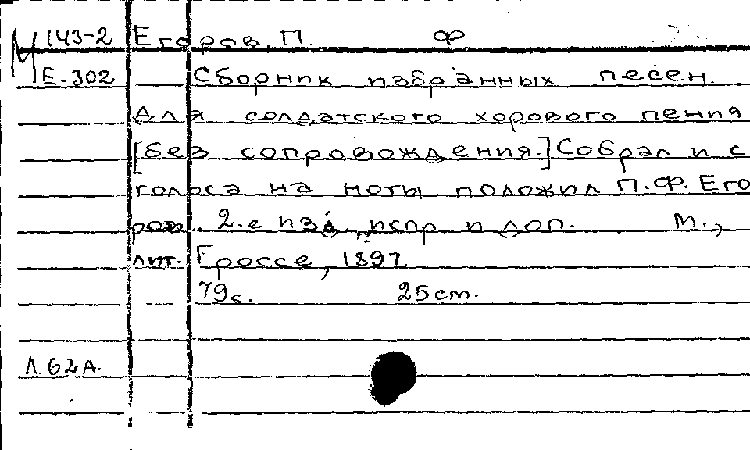 М 143-2 Егоров, П. Ф
Е-302 Сборник избранных песен.
Для солдатского хорового пения
[без сопровождения.] Собрал и с
голоса на ноты положил П.Ф. Его
ров. 2-е изд., испр и доп. М.,
лит. Гроссе, 1897
79с. 25cm.
Л 62А.